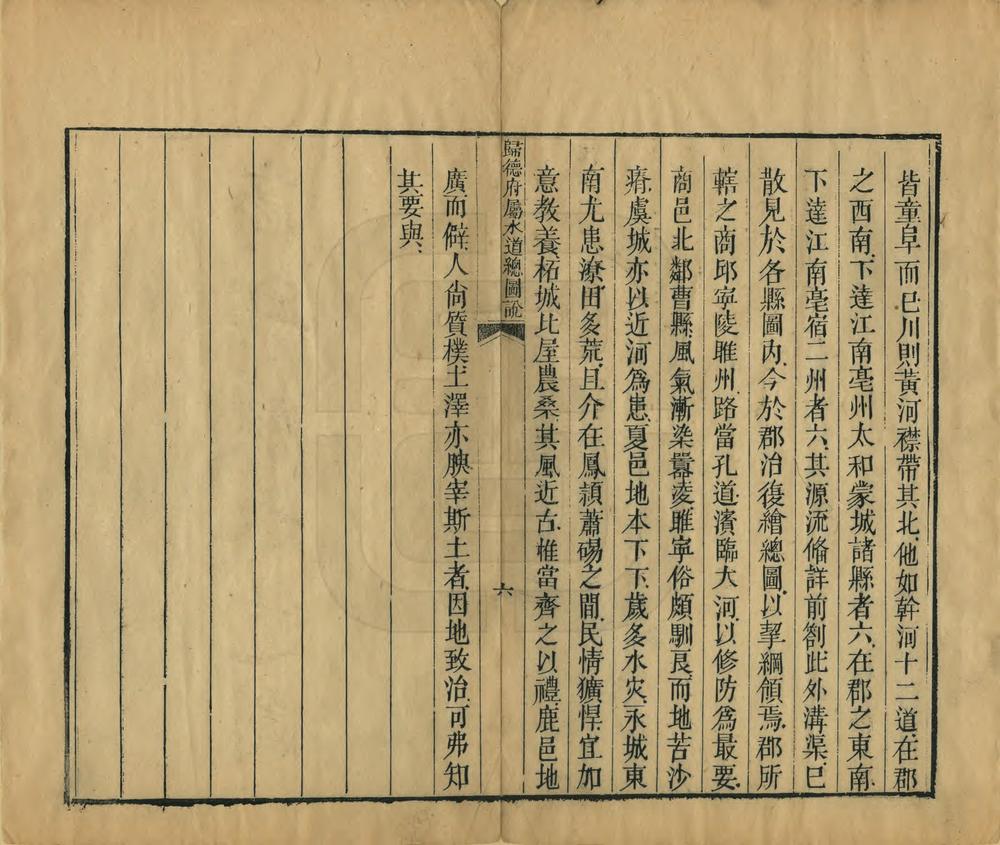 皆童阜而已川則黃河襟帶其北他如幹河十二道在郡
之西南下達江南亳州太和蒙城諸縣者六在郡之東南
下達江南亳宿二州者六其源流俻詳前劄此外溝渠已
散見於各縣圖內今於郡治復繪總圖以挈綱領焉郡所
轄之商邱寧陵睢州路當孔道濱臨大河以修防爲最要
商邑北鄰曹縣風氣漸染囂凌睢寧俗頗馴良而地苦沙
瘠虞城亦以近河爲患夏邑地本下下歲多水灾永城東
南尤患潦田多荒且介在鳳潁蕭碭之間民情獷悍宜加
意教養柘城比屋農桑其風近古惟當齊之以禮鹿邑地
歸德府屬水道總圖說
六
廣而僻人尙質樸土澤亦腴宰斯土者因地致治可弗知
其要與